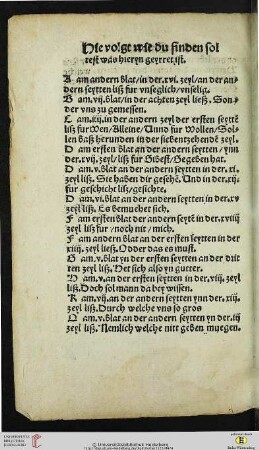 Hie volgt wie du finden sol
test was hieryn geyrret ist.
A am andern blat/in der.xvi.zeyl/an der an
dern seytten liß fur vnseglich/vnselig.
B am.vij.blat/in der achten zeyl ließ. Son-
der vns zu gemessen.
C am.iiij.in der andern zeyl der ersten seytte
liß fur Wen/Alleine/Unnd fur Wollen/Sol-
len baß herunden in der siebentzehende zeyl.
D am ersten blat an der andern seytten/ynn
der.xvij.zeyl/liß fur Gibest/Gegeben hat.
D am.v.blat an der andern seytten in der.xi.
zeyl liß. Sie haben dir geschē. Und in der.xij.
fur geschicht liß/gesichte.
D am.vi.blat an der andern seytten in der.xv
zeyl liß. Es bemuehet sich.
F am ersten blat der andern seytē in der.xviij
zeyl liß fur/noch nit/mich.
F am andern blat an der ersten seytten in der
xiij.zeyl ließ. Oder das es must.
G am.v.blat yn der ersten seytten an der drit
ten zeyl liß. Het sich also yn gutter.
am.v.an der ersten seytten in der.viij.zeyl
liß. Doch sol mann da bey wissen.
K am.vij.an der andern seytten ynn der.xiij.
zeyl liß. Durch welche vns so gros
O am.v.blat an der andern seytten yn der.iij
zeyl liß. Nemlich welche nitt geben muegen.
UNIVERSITÄTS-
BIBLIOTHEK
HEIDELBERG
© Universitätsbibliothek Heidelberg
Baden-Württemberg